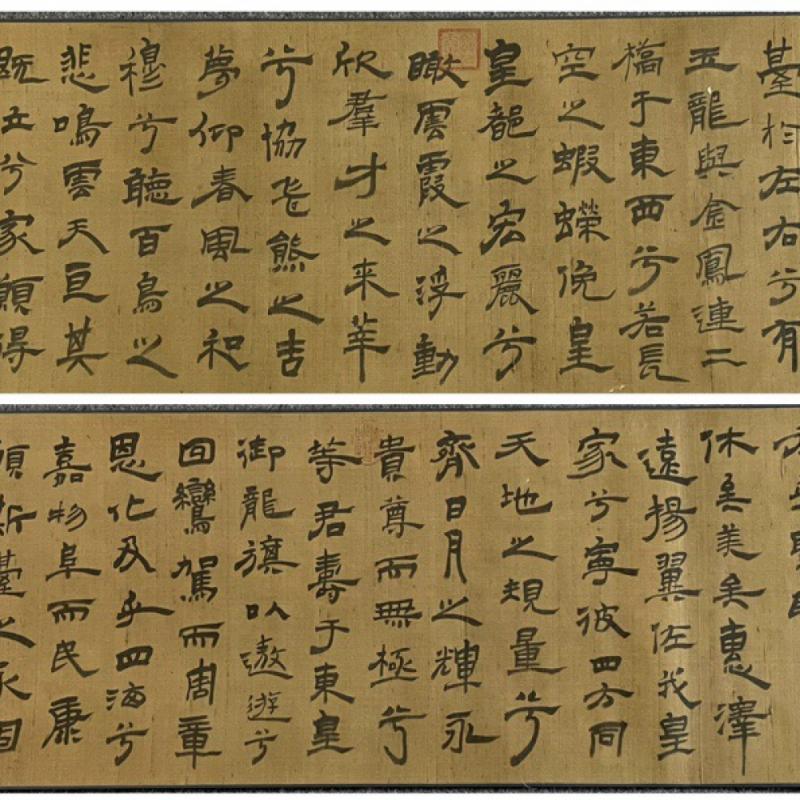 臺於左右兮有
五龍與金鳳連二
橋于東西兮若長
空之蝦蠑俛皇
皇都之宏麗兮
瞰雲霞之浮動
欣羣才之来萃
兮協飛熊之吉
夢仰春風之和
穆兮聽百鳥之
悲鳴雲天亘其
既立兮家願得
休矣美矣惠澤
遠揚翼佐我皇
家兮寧彼四方同
天地之規量兮
齊日月之輝永
貴尊而無極兮
等君壽于東皇
御龍旗以遨遊兮
回鸞駕而周章
恩化及乎四海兮
嘉物阜而民康
願斯臺之永固